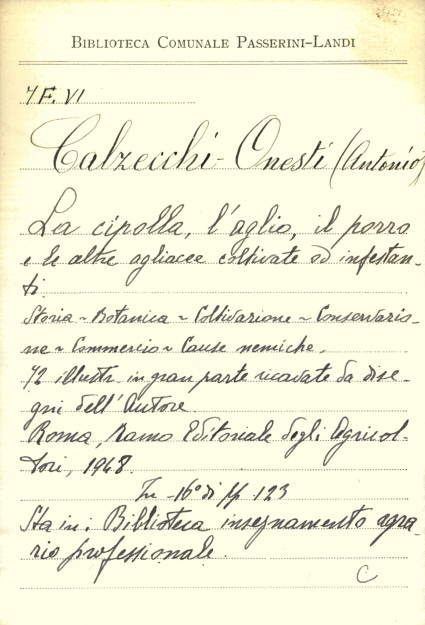 BIBLIOTECA COMUNALE PASSERINI-LANDI
7 F. VI
Calzecchi-Onesti (Antonio)
La cipolla, l'aglio, il porro
e le altre agliacee coltivate ed infestan-
ti.
Storia - Botanica - Coltivazione - Conservazio-
ne - Commercio - Cause nemiche.
72 illustr. in gran parte ricavate da dise-
gni dell'Autore
Roma, Ramo Editoriale degli Agricol-
tori, 1948.
In - 16° di pp 123
Sta in: Biblioteca insegnamento agra-
rio professionale.
C